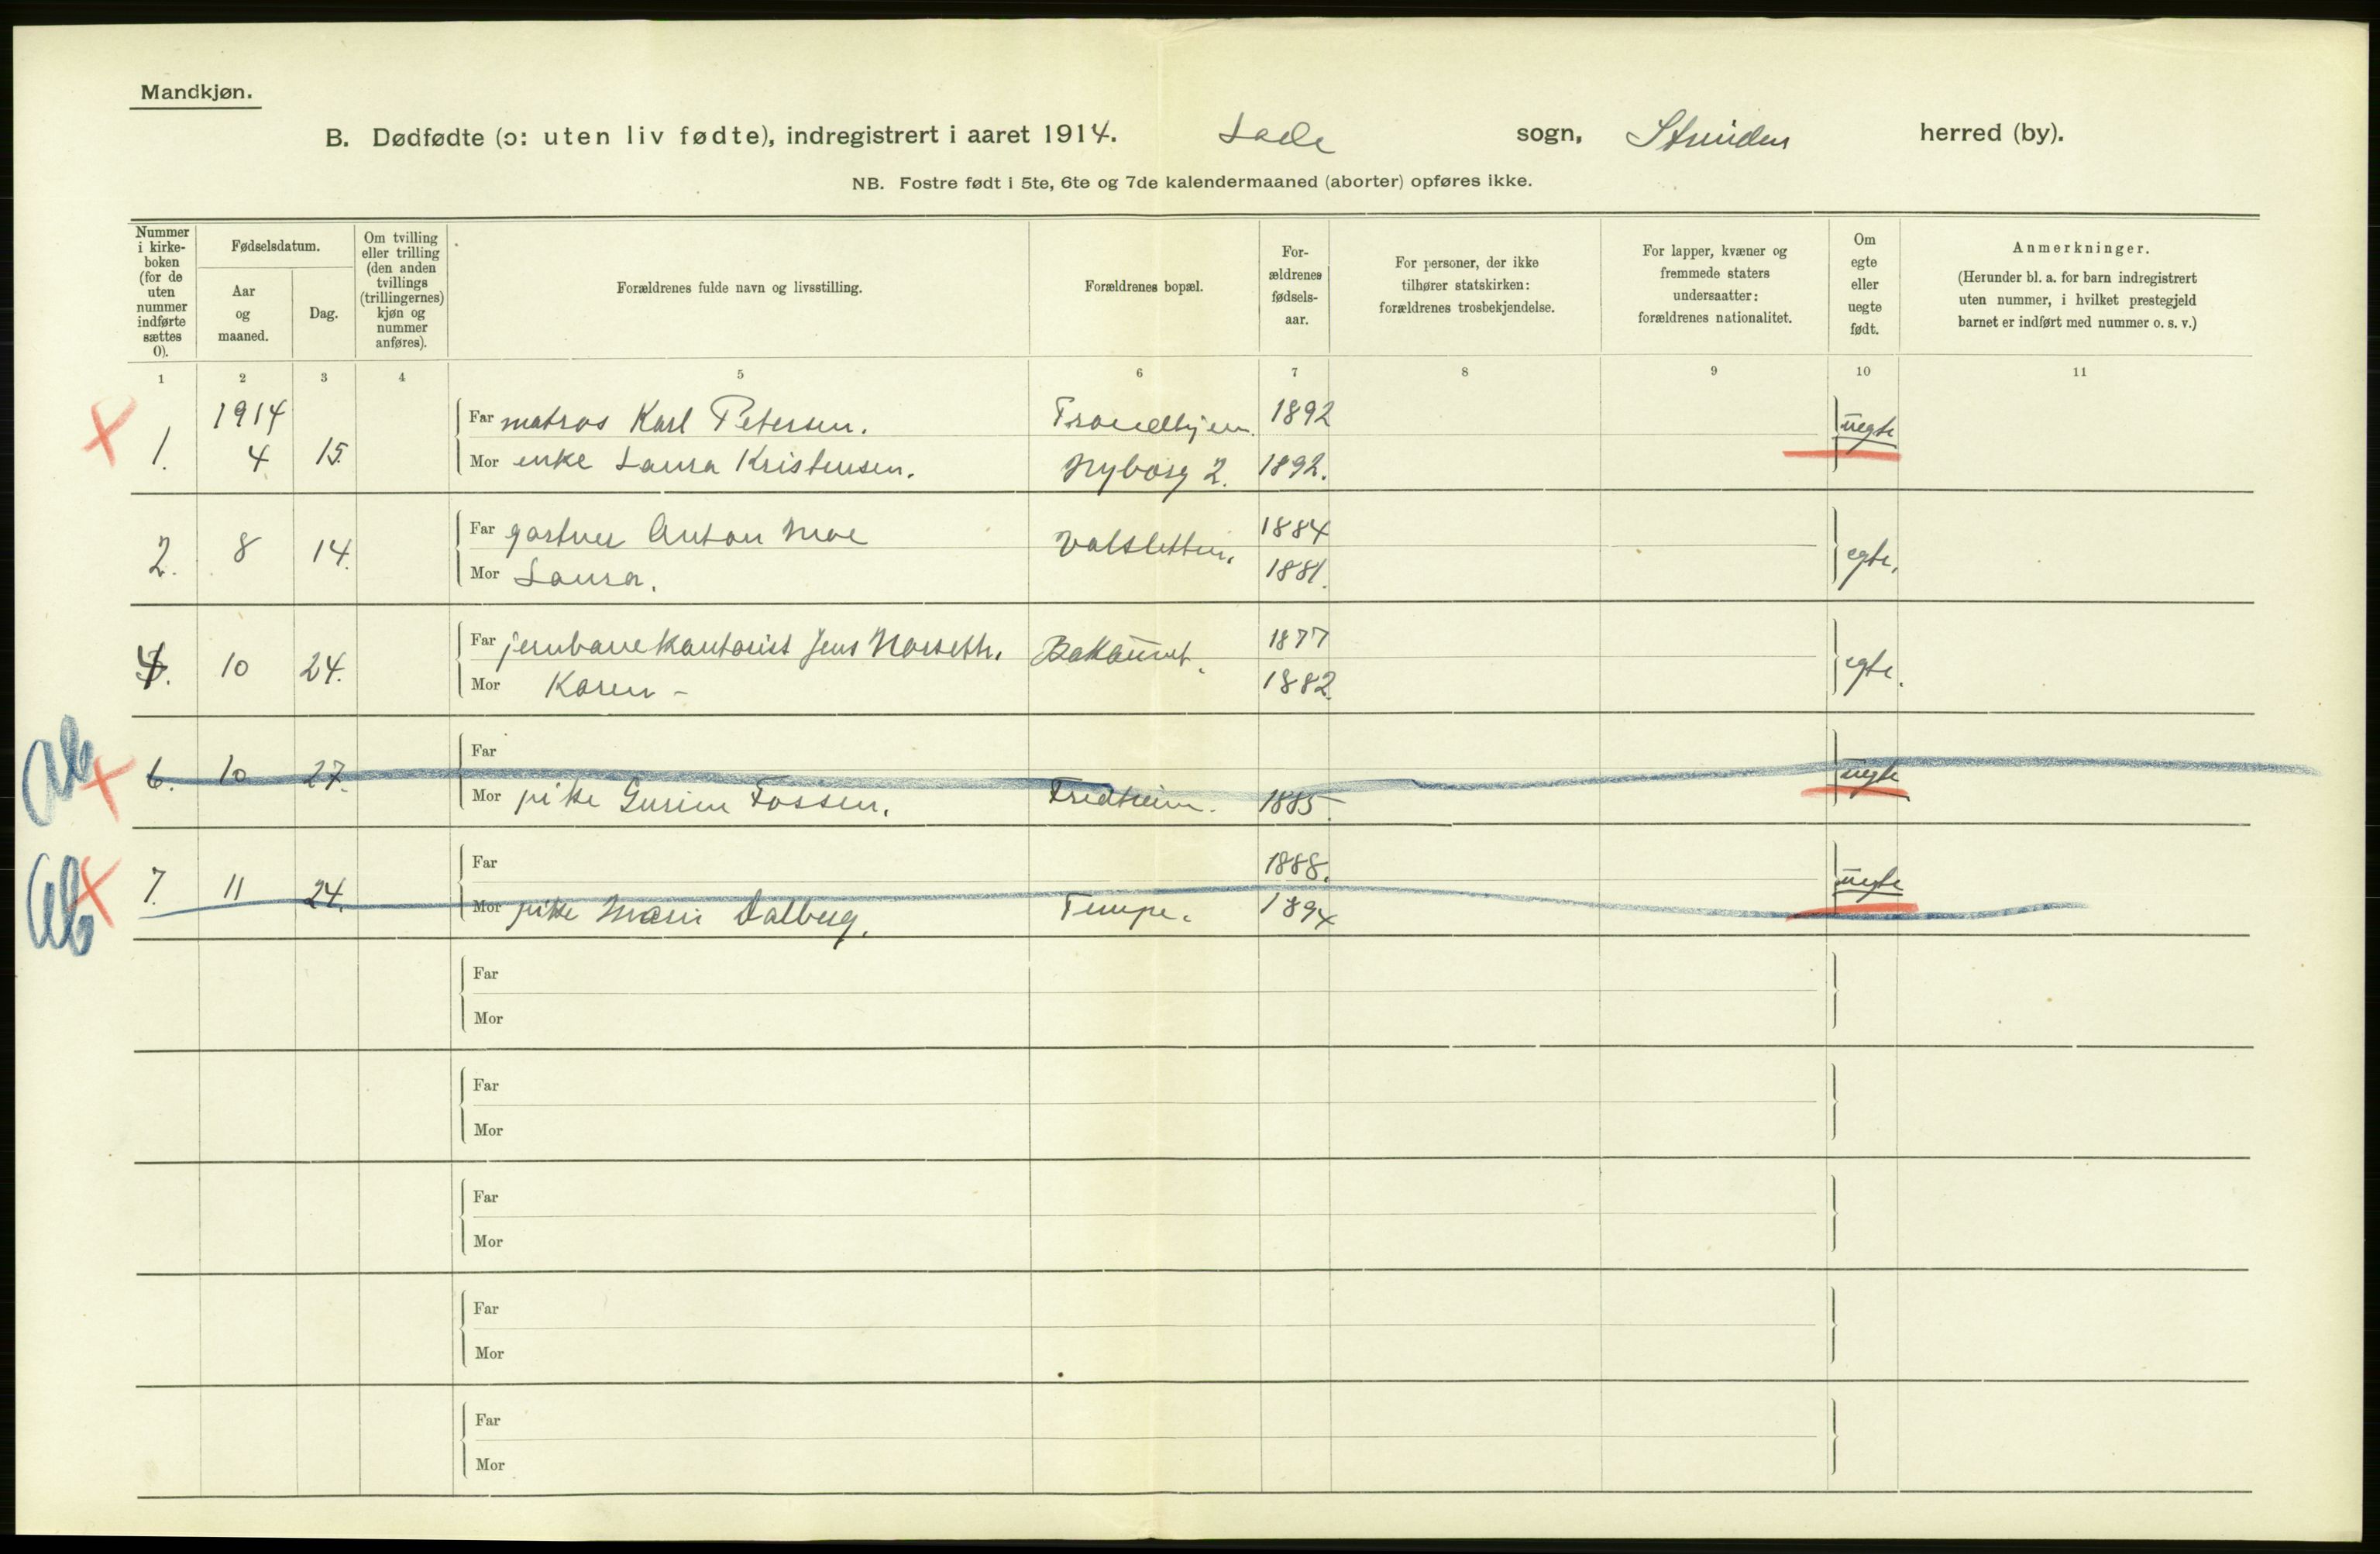 Mandkjøn.
B. Dødfødte (ɔ: uten liv fødte), indregistrert i aaret 1914. Lade sogn, Strinden herred (by).
NB. Fostre født i 5te, 6te og 7de kalendermaaned (aborter) opføres ikke.
Nummer i kirke-boken (for de uten nummer indførte sættes 0).
Fødselsdatum.
Aar og maaned.
Dag.
Om tvilling eller trilling (den anden tvillings (trillingernes) kjøn og nummer anføres).
Forældrenes fulde navn og livsstilling.
Forældrenes bopæl.
For-ældrenes fødsels-aar.
For personer, der ikke tilhører statskirken: forældrenes trosbekjendelse.
For lapper, kvæner og fremmede staters undersaatter: forældrenes nationalitet.
Om egte eller uegte født.
Anmerkninger.
(Herunder bl. a. for barn indregistrert uten nummer, i hvilket prestegjeld barnet er indført med nummer o. s. v.)
1 2 3 4 5 6 7 8 9 10 11
1914
Far matros Karl Petersen. Trondhjem. 1892 uegte
1. 4 15. Mor enke Laura Kristensen. Nyborg 2. 1892.
Far gartner Anton Moe 1884
2. 8 14. Valsletten. egte.
Mor Laura. 1881.
Far jernbanekontorist Jens Norseth. Bakaunet. 1877
4. 10 24. egte.
Mor Karen - 1882.
Ab Far
6. 10 27. uegte
Mor pike Gurine Fossen. Fredheim. 1885.
Ab Far 1888.
7. 11 24. uegte
Mor pike Marie Dalberg. Tempe. 1894
Far
Mor
Far
Mor
Far
Mor
Far
Mor
Far
Mor